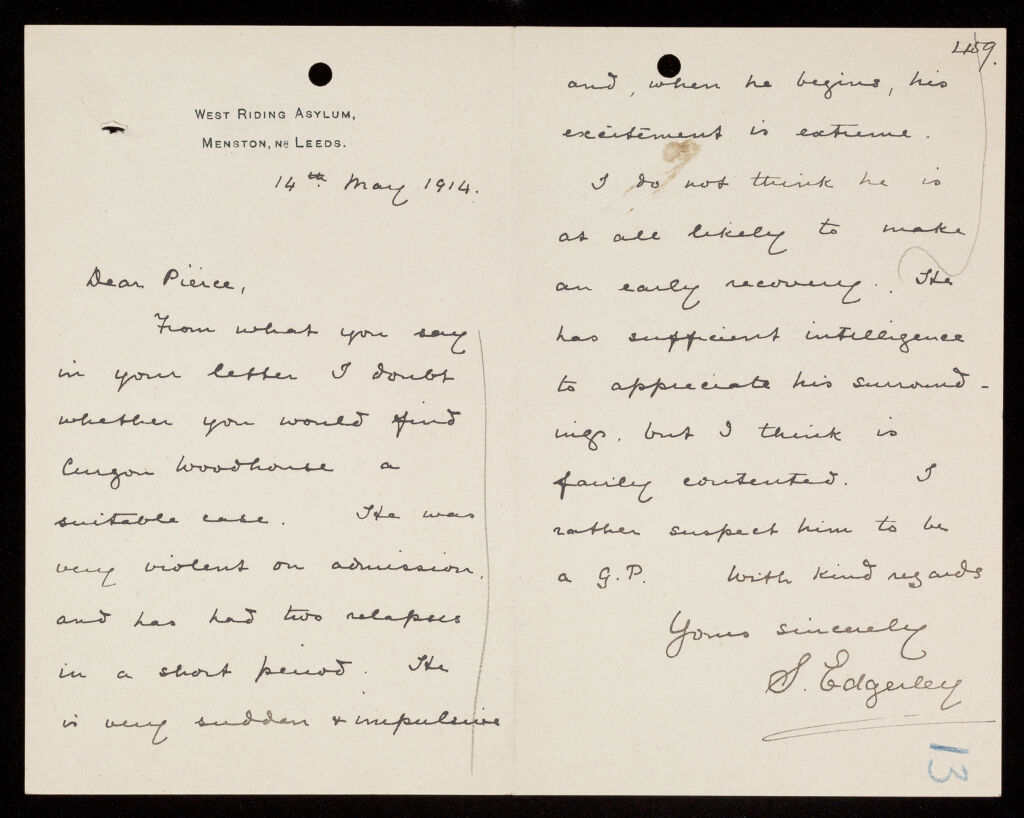 WEST RIDING ASYLUM,
MENSTON, NR LEEDS.
14th. May 1914.
Dear Pierce,
From what you say
in your letter I doubt
whether you would find
Curzon Woodhouse a
suitable case. He was
very violent on admission,
and has had two relapses
in a short period. He
is very sudden & impulsive
459.
and, when he begins, his
excitement is extreme.
I do not think he is
at all likely to make
an early recovery. He
has sufficient intelligence
to appreciate his surround-
ings, but I think is
fairly contented. I
rather suspect him to be
a G.P. With kind regards
Yours sincerely
S. Edgerley
13